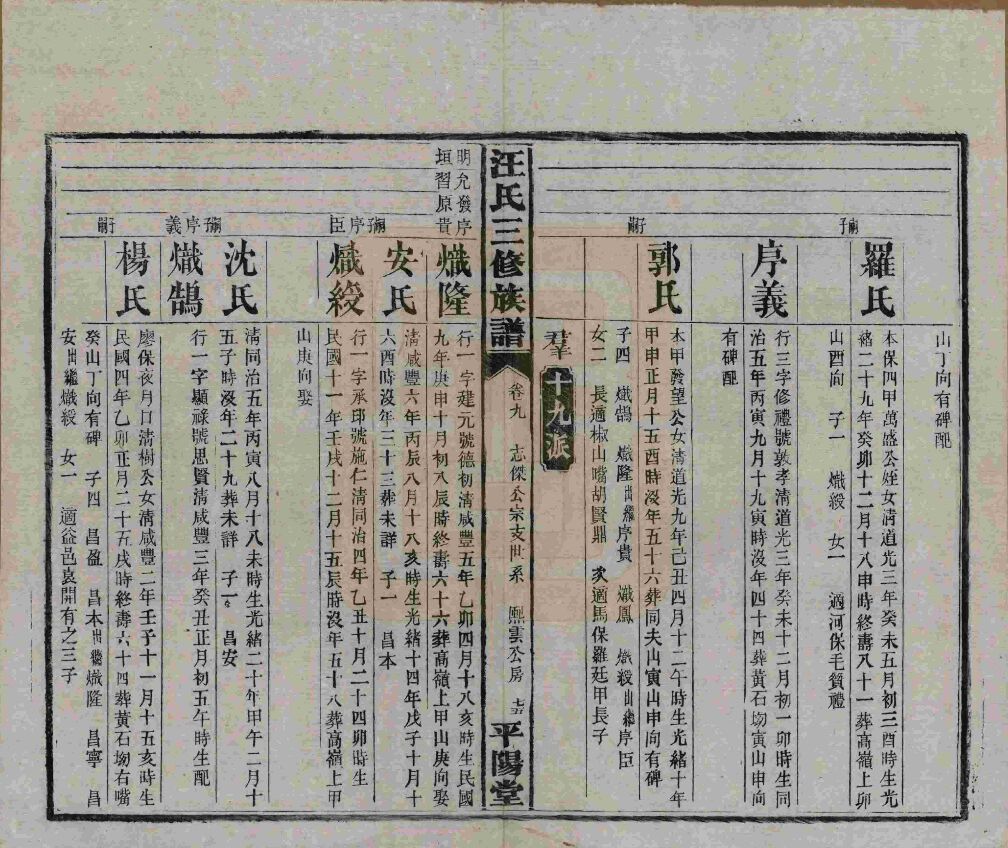 山丁向有碑配
嗣子
羅氏
本保四甲萬盛公姪女清道光三年癸未五月初三酉時生光
緒二十九年癸卯十二月十八申時終壽八十一葬高嶺上卯
山酉向 子一 熾綬 女一 適河保毛質禮
序義
行三字修禮號敦孝清道光三年癸未十二月初一卯時生同
治五年丙寅九月十九寅時沒年四十四葬黃石坳寅山申向
有碑配
嗣子
郭氏
本甲發望公女清道光九年己丑四月十二午時生光緒十年
甲申正月十五酉時沒年五十六葬同夫山寅山申向有碑
子四 熾鵠 熾隆出繼序貴 熾鳳 熾綬出繼序臣
女二 長適椒山嘴胡賢鼎 次適馬保羅廷甲長子
羣
十九派
汪氏三修族譜
卷九 志傑公宗支世系 熙雲公房 七五
平陽堂
明允發序
垣習原貴
熾隆
行一字建元號德初清咸豐五年乙卯四月十八亥時生民國
九年庚申十月初八辰時終壽六十六葬高嶺上甲山庚向娶
安氏
清咸豐六年丙辰八月十八亥時生光緒十四年戊子十月十
六酉時沒年三十三葬未詳 子一 昌本
嗣子序臣
熾綬
行一字承印號施仁清同治四年乙丑十月二十四卯時生
民國十一年壬戌十二月十五辰時沒年五十八葬高嶺上甲
山庚向娶
沈氏
清同治五年丙寅八月十八未時生光緒二十年甲午二月十
五子時沒年二十九葬未詳 子一 昌安
嗣子序義
熾鵠
行一字顯祿號思賢清咸豐三年癸丑正月初五午時生配
嗣子
楊氏
廖保夜月口清樹公女清咸豐二年壬子十一月十五亥時生
民國四年乙卯正月二十五戌時終壽六十四葬黃石坳右嘴
癸山丁向有碑 子四 昌盈 昌本出繼熾隆 昌寧 昌
安出繼熾綬 女一 適益邑袁開有之三子